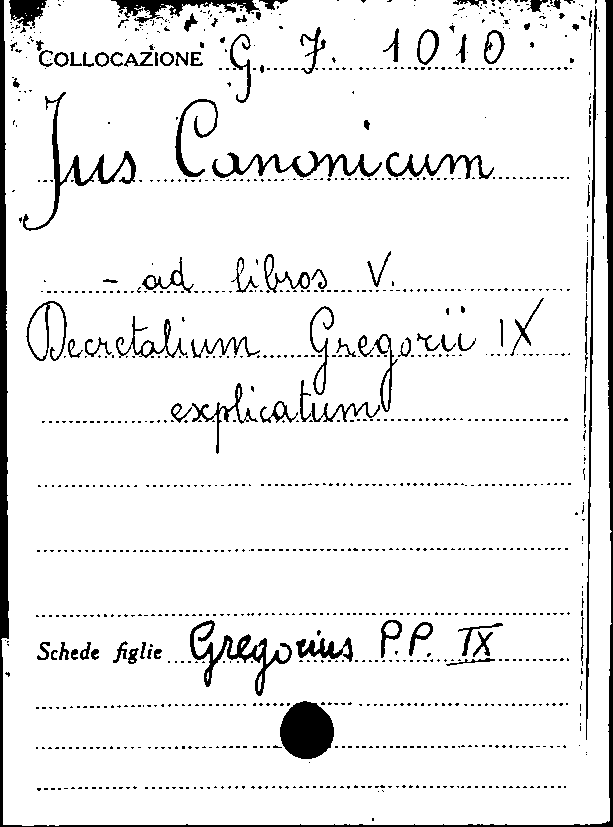 COLLOCAZIONE G. 7. 1010
Jus Canonicum
- ad libros V.
Decretalium Gregorii IX
explicatum
Schede figlie Gregorius P.P. IX